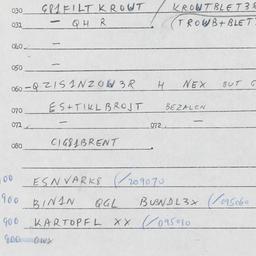 030 G81FILT KROWT / KROWTBLET38
031 - QH R (TROWB+BLET
040 -
050 -
060 -QZIS1NZOW3R H NEX BUT G
070 ES+TIKLBROJT BEZALEN
071 - 072 -
080 CIG81BRENT
00 ESNVARK8 (/209070
900 BIN1N QGL BUNDL3X (/095060
900 KARTOPFL XX (/095090